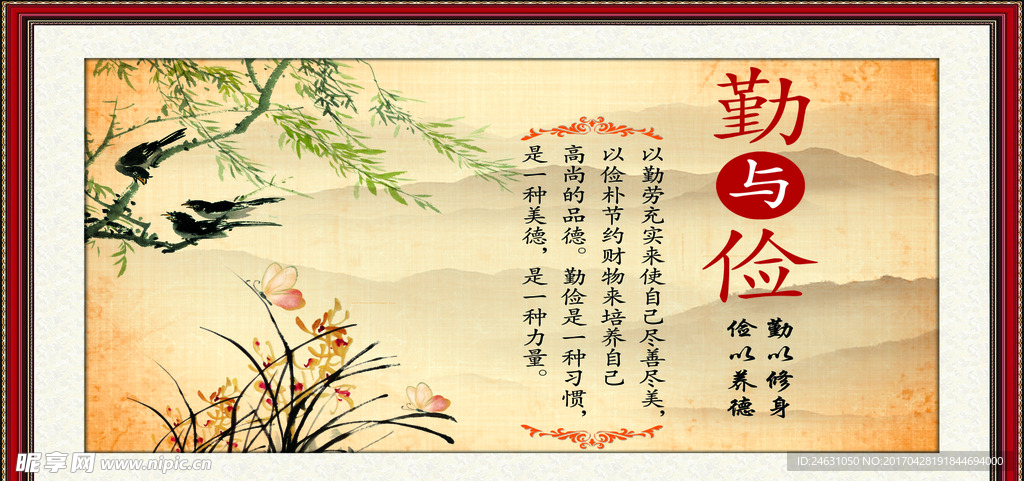 勤与俭
勤以修身
俭以养德
以勤劳充实来使自己尽善尽美，
以俭朴节约财物来培养自己
高尚的品德。勤俭是一种习惯，
是一种美德，是一种力量。
昵享网 www.nipic.cn
ID:24631050 NO:20170428191844694000